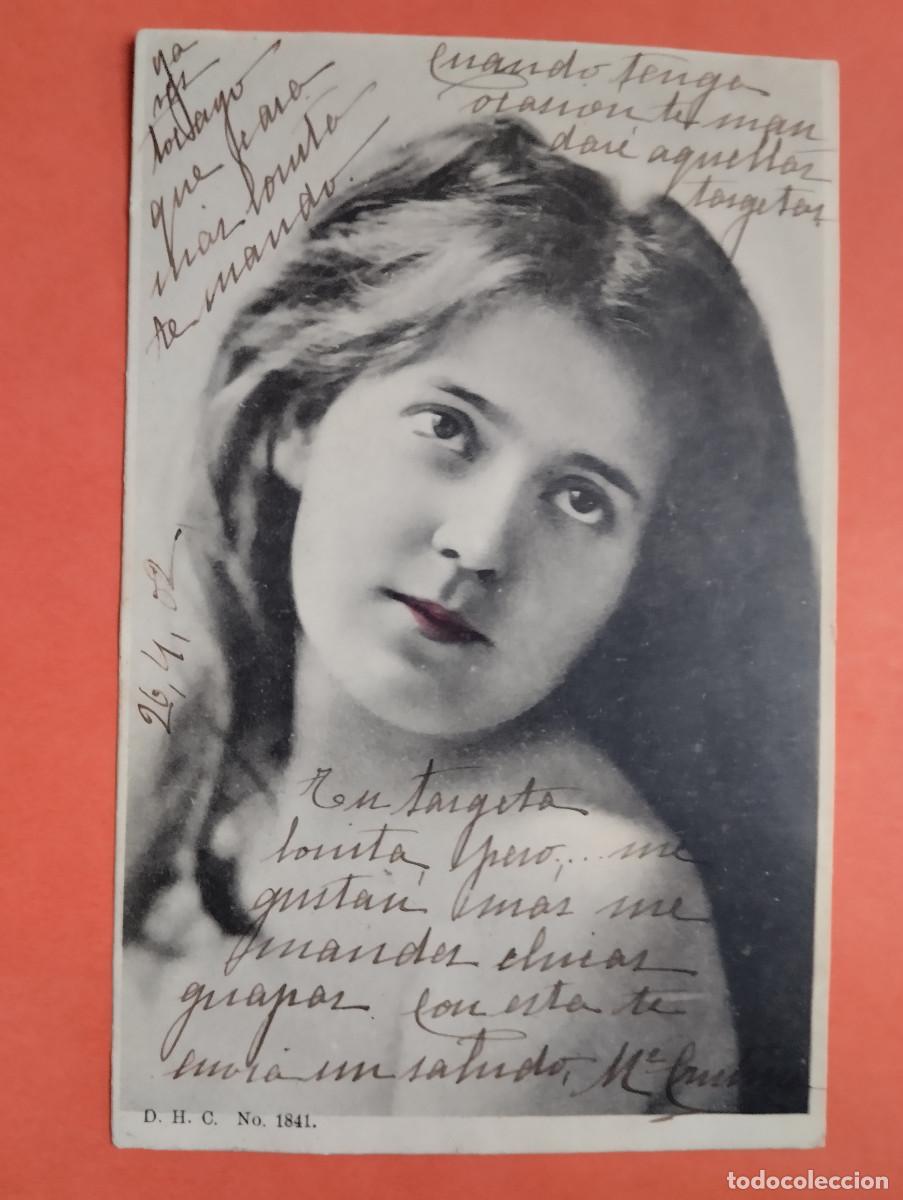 Cuando tenga
ocasion te man
daré aquellas
targetas
ya
ves
que cara
mas bonita
te mando.
26, 4, 02
Tu targeta
bonita, pero,... me
gustan mas me
mandes chicas
guapas. Con esta te
envia un saludo, Mª
D. H. C. No. 1841.
todocoleccion